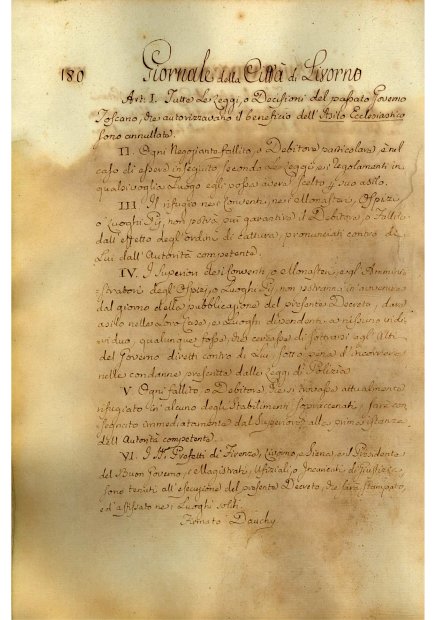 180 Giornale della Città di Livorno
Art. I. Tutte Le Leggi, o Decisioni del passato Governo
Toscano, che autorizzavano il beneficio dell'Asilo Ecclesiastico
sono annullate.
II. Ogni Negoziante fallito, o Debitore particolare è nel
caso di essere inseguito secondo Le Leggi, e Regolamenti in
qualsivoglia Luogo egli possa avere scelto il suo asilo.
III. Il rifugio nei Conventi, nei Monasteri, Ospizi,
o Luoghi Pij, non potrà più garantire il Debitore, o Fallito
dall'effetto degl'ordini di cattura, pronunciati contro di
Lui dall'Autorità competente.
IV. I Superiori dei Conventi, o Monasteri, e gli Ammini-
stratori degli Ospizi, o Luoghi Pij, non potranno in avvenire
dal giorno della pubblicazione del presente Decreto, dare
asilo nelle Loro Case, e Luoghi dipendenti, a nissuno indi-
viduo, qualunque fosse, che cercasse di sottrarsi agl'Atti
del Governo diretti contro di Lui, sotto pena d'incorrere
nelle condanne prescritte dalle Leggi di Polizia
V. Ogni fallito, o Debitore che si trovasse attualmente
refugiato in alcuno degli Stabilimenti sopraccennati, sarà con-
segnato immediatamente dal Superiore alla prima istanza
dell'Autorità competente.
VI. I SS. Prefetti di Firenze, Livorno, e Siena, e il Presidente
del Buon Governo, e Magistrati, Ufiziali, o Incaricati di Giustizia,
sono tenuti all'esecuzione del presente Decreto, che sarà stampato,
ed affissato nei Luoghi soliti.
Firmato Dauchy